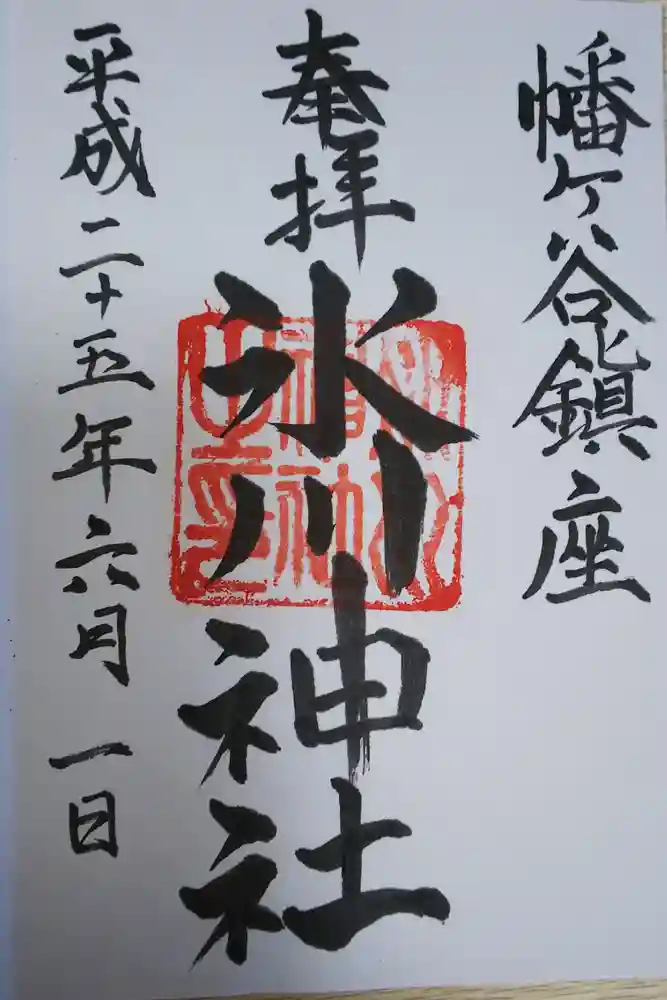 幡ケ谷鎭座
奉拝
氷川神社
平成二十五年六月一日